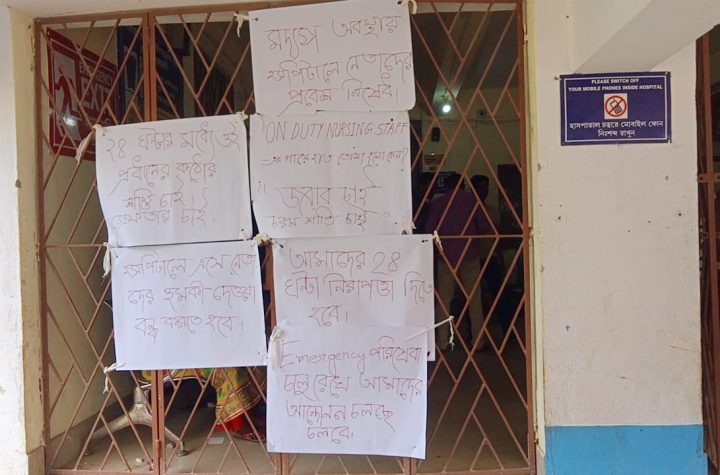 মদ্যপ অবস্থায়
হসপিটালে নেতাদের
প্রবেশ নিষেধ।
২৪ ঘন্টার মধ্যে ওই
প্রধানের কঠোর
শাস্তি চাই।
গ্রেফতার চাই।
ON DUTY NURSING STAFF
এর গায়ে হাত তোলা হলো কেন?
" জবাব চাই
চরম শাস্তি চাই "
হসপিটালে এসে নেতা
দের হুমকী-দেওয়া
বন্ধ করতে হবে।
আমাদের 24
ঘন্টা নিরাপত্তা দিতে
হবে।
Emergency পরিষেবা
চালু রেখে আমাদের
আন্দোলন চলছে
চলবে।
EMERGENCY
EXIT
PLEASE SWITCH OFF
YOUR MOBILE PHONES INSIDE HOSPITAL
হাসপাতাল চত্বরে মোবাইল ফোন
নিঃশব্দ রাখুন